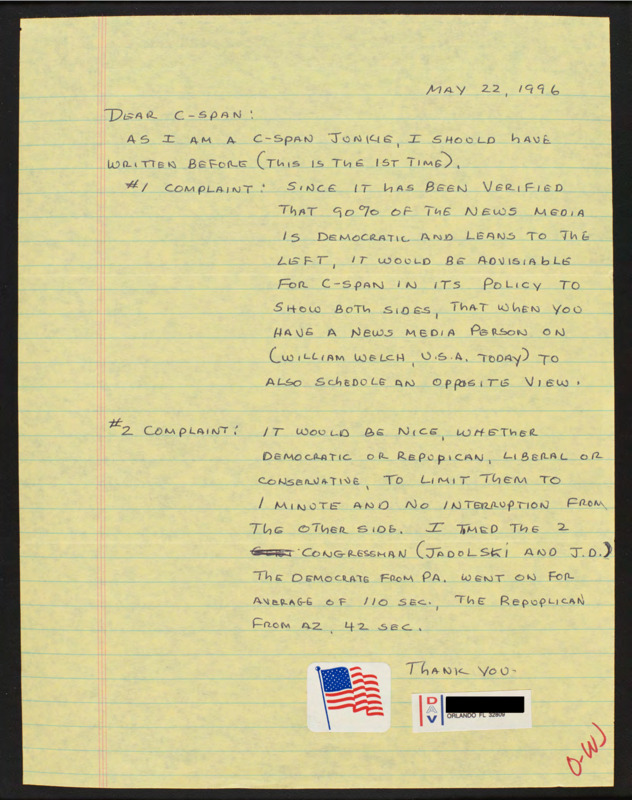 MAY 22, 1996
DEAR C-SPAN:
AS I AM A C-SPAN JUNKIE, I SHOULD HAVE
WRITTEN BEFORE (THIS IS THE 1ST TIME).
#1 COMPLAINT: SINCE IT HAS BEEN VERIFIED
THAT 90% OF THE NEWS MEDIA
IS DEMOCRATIC AND LEANS TO THE
LEFT, IT WOULD BE ADVISIABLE
FOR C-SPAN IN ITS POLICY TO
SHOW BOTH SIDES, THAT WHEN YOU
HAVE A NEWS MEDIA PERSON ON
(WILLIAM WELCH, U.S.A. TODAY) TO
ALSO SCHEDULE AN OPPOSITE VIEW.
#2 COMPLAINT: IT WOULD BE NICE, WHETHER
DEMOCRATIC OR REPUPICAN, LIBERAL OR
CONSERVATIVE, TO LIMIT THEM TO
1 MINUTE AND NO INTERRUPTION FROM
THE OTHER SIDE. I TIMED THE 2
CONGRESSMAN (JADOLSKI AND J.D.)
THE DEMOCRATE FROM PA. WENT ON FOR
AVERAGE OF 110 SEC., THE REPUPLICAN
FROM AZ, 42 SEC.
THANK YOU-
DAV
ORLANDO FL 32809
O-W